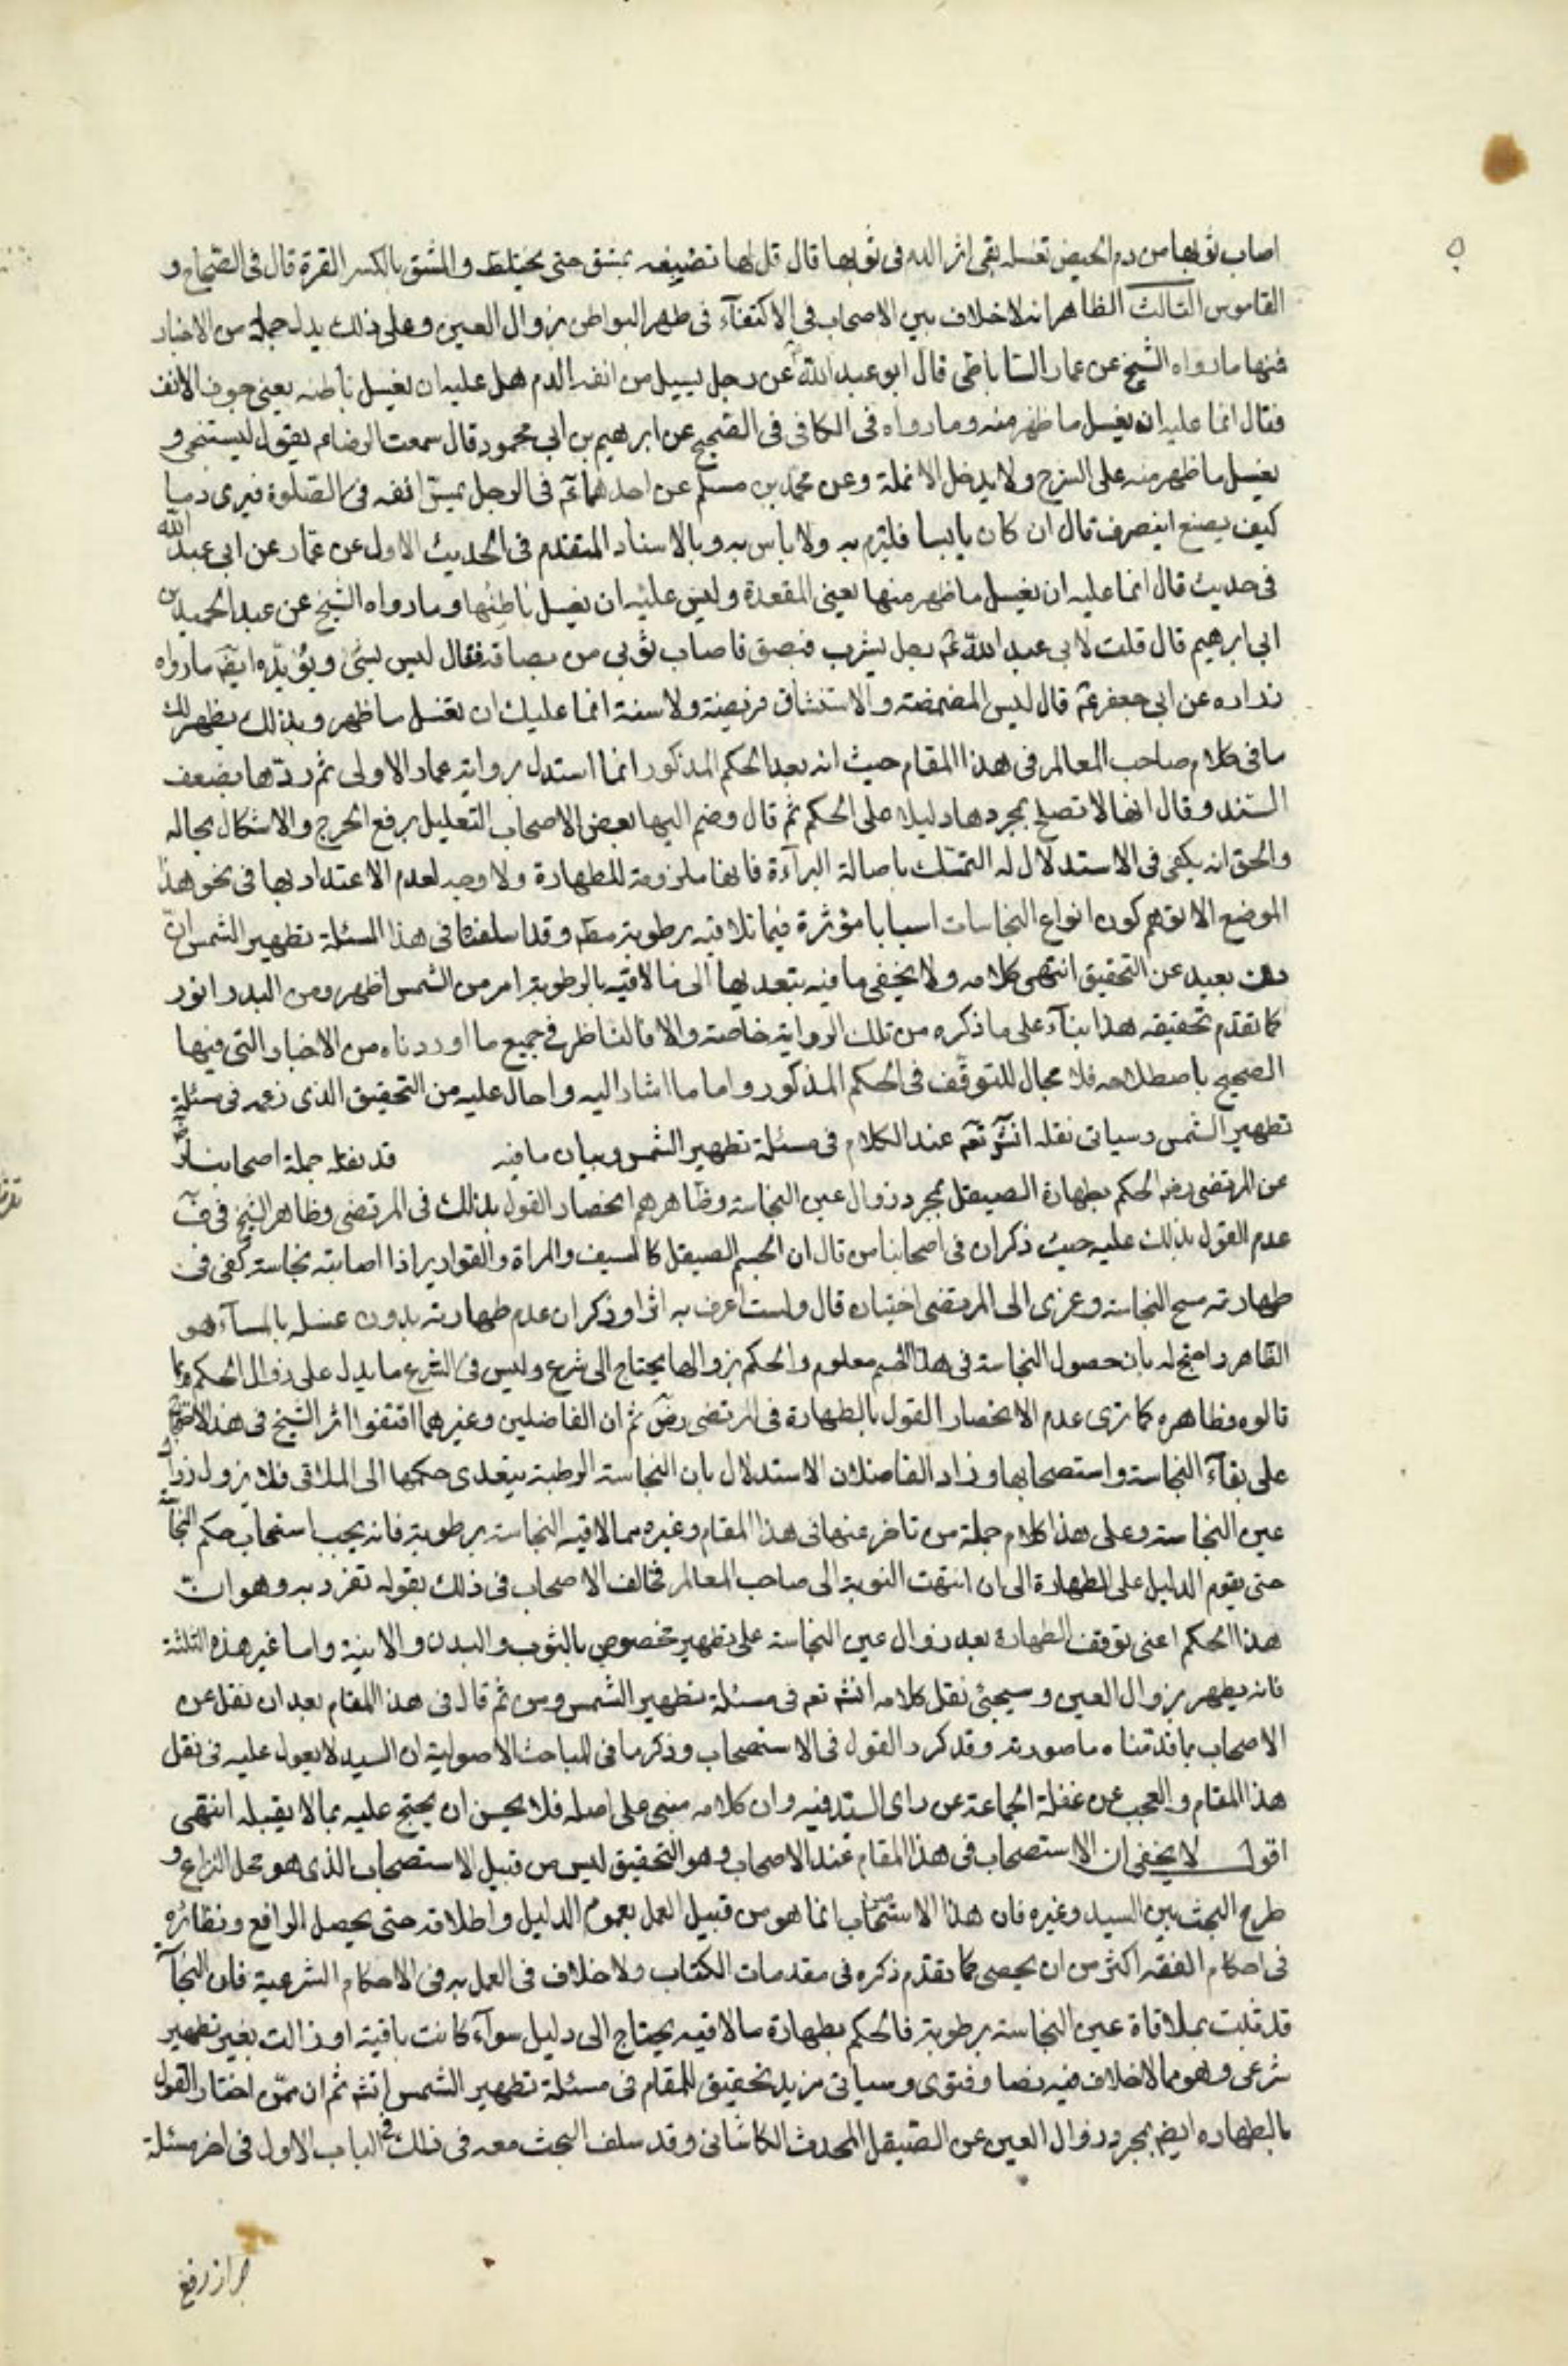 اصاب ثوبها من دم الحيض تغسله بقى اثر الدم فى ثوبها قال قل لها تضيفه بمشق حتى يختلط و المشق بالكسر القرة قال فى الصحاح و
القاموس الثالث الظاهر انه لا خلاف بين الاصحاب فى الاكتفآء فى طهر البواطن بزوال العين وعلى ذلك يدل جملة من الاخبار
فمنها ما رواه الشيخ عن عمار الساباطى قال ابو عبد الله عن رجل يسيل من انفه الدم هل عليه ان يغسل باطنه يعنى جوف الانف
فقال انما عليه ان يغسل ما ظهر منه وما رواه فى الكافى فى الصحيح عن ابرهيم بن ابى محمود قال سمعت الرضا عم يقول ليستنجى و
يغسل ما ظهر منه على الشرج ولا يدخل الانملة وعن محمد بن مسلم عن احدهما عم فى الرجل يمس انفه فى الصلوة فيرى دما
كيف يصنع اينصرف قال ان كان يابسا فليرم به ولا باس به وبالاسناد المتقدم فى الحديث الاول عن عمار عن ابى عبد الله
فى حديث قال انما عليه ان يغسل ما ظهر منها يعنى المقعدة وليس عليه ان يغسل باطنها وما رواه الشيخ عن عبد الحميد بن
ابى ابرهيم قال قلت لابى عبد الله عم رجل يشرب فبصق فاصاب ثوبى من بصاقه فقال ليس بشئ ويؤيده ايضا ما رواه
زراره عن ابى جعفر عم قال ليس المضمضة والاستنشاق فريضة ولا سنة انما عليك ان تغسل ما ظهر وبذلك يظهر لك
ما فى كلام صاحب المعالم فى هذا المقام حيث انه بعد الحكم المذكور انما استدل برواية عمار الاولى ثم ردها بضعف
السند وقال انها لا تصلح بمجردها دليلا على الحكم ثم قال وضم اليها بعض الاصحاب التعليل برفع الحرج والاشكال بحاله
والحق انه يكفى فى الاستدلال له التمسك باصالة البرآءة فانها ملزومة للطهارة ولا وجه لعدم الاعتداد بها فى نحو هذا
الموضع الا توهم كون انواع النجاسات اسبابا مؤثرة فيما تلاقيه برطوبة مطم وقد اسلفنا فى هذا المسئلة تطهير الشمس ان
ذلك بعيد عن التحقيق انتهى كلامه ولا يخفى ما فيه بتعديها الى ما لاقته بالرطوبة امر من الشمس اظهر ومن البدر انور
كما تقدم تحقيقه هذا بنآء على ما ذكره من تلك الرواية خاصة والا فالناظر فى جميع ما اوردناه من الاخبار التى فيها
الصحيح باصطلاحه فلا مجال للتوقف فى الحكم المذكور واما ما اشار اليه واحال عليه من التحقيق الذى زعمه فى مسئلة
تطهير الشمس وسياتى نقله انش تعم عند الكلام فى مسئلة تطهير الشمس وبيان ما فيه قد نقله جملة اصحابنا
عن المرتضى رضه الحكم بطهارة الصيقل بمجرد زوال عين النجاسة وظاهرهم انحصار القول بذلك فى المرتضى وظاهر الشيخ فى ف
عدم القول بذلك عليه حيث ذكر ان فى اصحابنا من قال ان الجسم الصيقل كالسيف والمراة والقوارير اذا اصابته نجاسة كفى فى
طهارته مسح النجاسة وعزى الى المرتضى اختياره قال ولست اعرف به اثرا وذكر ان عدم طهارته بدون غسله بالمآء هو
الظاهر واحتج له بان حصول النجاسة فى هذا الجسم معلوم والحكم بزوالها يحتاج الى شرع وليس فى الشرع ما يدل على زوال الحكم بما
قالوه وظاهره كما ترى عدم الانحصار القول بالطهارة فى المرتضى رض ثم ان الفاضلين وغيرهما اقتفوا اثر الشيخ فى هذا الاحتجاج
على بقآء النجاسة واستصحابها وزاد الفاضلان الاستدلال بان النجاسة الرطبة يتعدى حكمها الى الملاقى فلا يزول بزوال
عين النجاسة وعلى هذا كلام جملة من تاخر عنها فى هذا المقام وغيره مما لاقته النجاسة برطوبة فانه يجب استصحاب حكم النجآ
حتى يقوم الدليل على الطهارة الى ان انتهت النوبة الى صاحب المعالم فخالف الاصحاب فى ذلك بقوله تفرد به وهو ان
هذا الحكم اعنى توقف الطهارة بعد زوال عين النجاسة على تطهير مخصوص بالثوب والبدن والانية واما غير هذه الثلثة
فانه يطهر بزوال العين وسيجئ نقل كلامه انش تعم فى مسئلة تطهير الشمس ومن ثم قال فى هذا المقام بعد ان نقل عن
الاصحاب ما قدمناه ما صورته وقد كرر القول فى الاستصحاب وذكر ما فى المباحث الاصولية ان السيد لا يعول عليه فى نقل
هذا المقام والعجب من غفلة الجماعة عن راى السيد فيه وان كلامه مبنى على اصله فلا يحسن ان يحتج عليه بما لا يقبله انتهى
اقول لا يخفى ان الاستصحاب فى هذا المقام عند الاصحاب وهو التحقيق ليس من قبيل الاستصحاب الذى هو محل النزاع و
طرح البحث بين السيد وغيره فان هذا الاستصحاب انما هو من قبيل العمل بعموم الدليل واطلاقه حتى يحصل الرافع ونظائره
فى احكام الفقه اكثر من ان يحصى كما تقدم ذكره فى مقدمات الكتاب ولا خلاف فى العمل به فى الاحكام الشرعية فان النجآ
قد ثبت بملاقاة عين النجاسة برطوبة فالحكم بطهارة ما لاقيه يحتاج الى دليل سوآء كانت باقية او زالت بغير تطهير
شرعى وهو مما لا خلاف فيه نصا وفتوى وسياتى مزيد تحقيق للمقام فى مسئلة تطهير الشمس انش ثم ان ممن اختار القول
بالطهاره ايضا بمجرد زوال العين عن الصيقل المحدث الكاشانى وقد سلف البحث معه فى ذلك فى الباب الاول فى اخر مسئلة